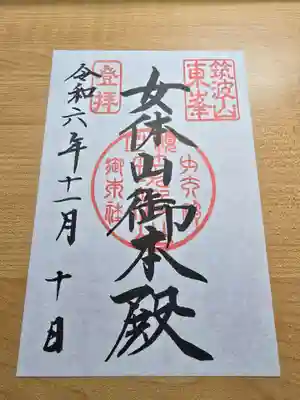 筑波山
東峯
女体山御本殿
登拝
令和六年十一月十日